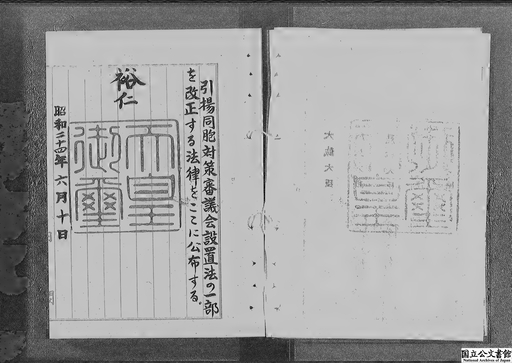 引揚同胞対策審議会設置法の一部
を改正する法律をここに公布する。
裕仁
天皇
御璽
昭和二十四年六月十日
国立公文書館
National Archives of Japan